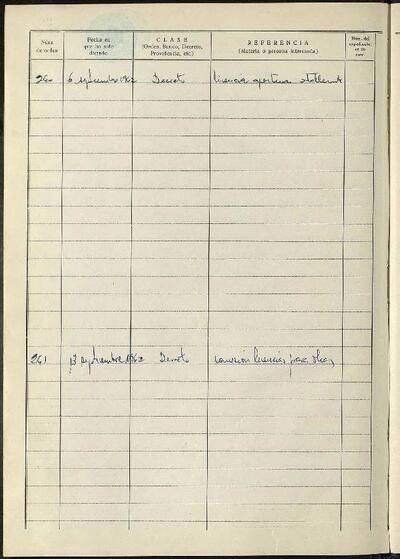 Núm. de orden
Fecha en que ha sido dictado
CLASE
(Orden, Bando, Decreto, Providencia, etc.)
REFERENCIA
(Materia o persona interesada)
Núm. del expediente
260 6 septiembre 1962 Decreto licencia apertura
261 13 septiembre 1962 Decreto concesión licencias para obras